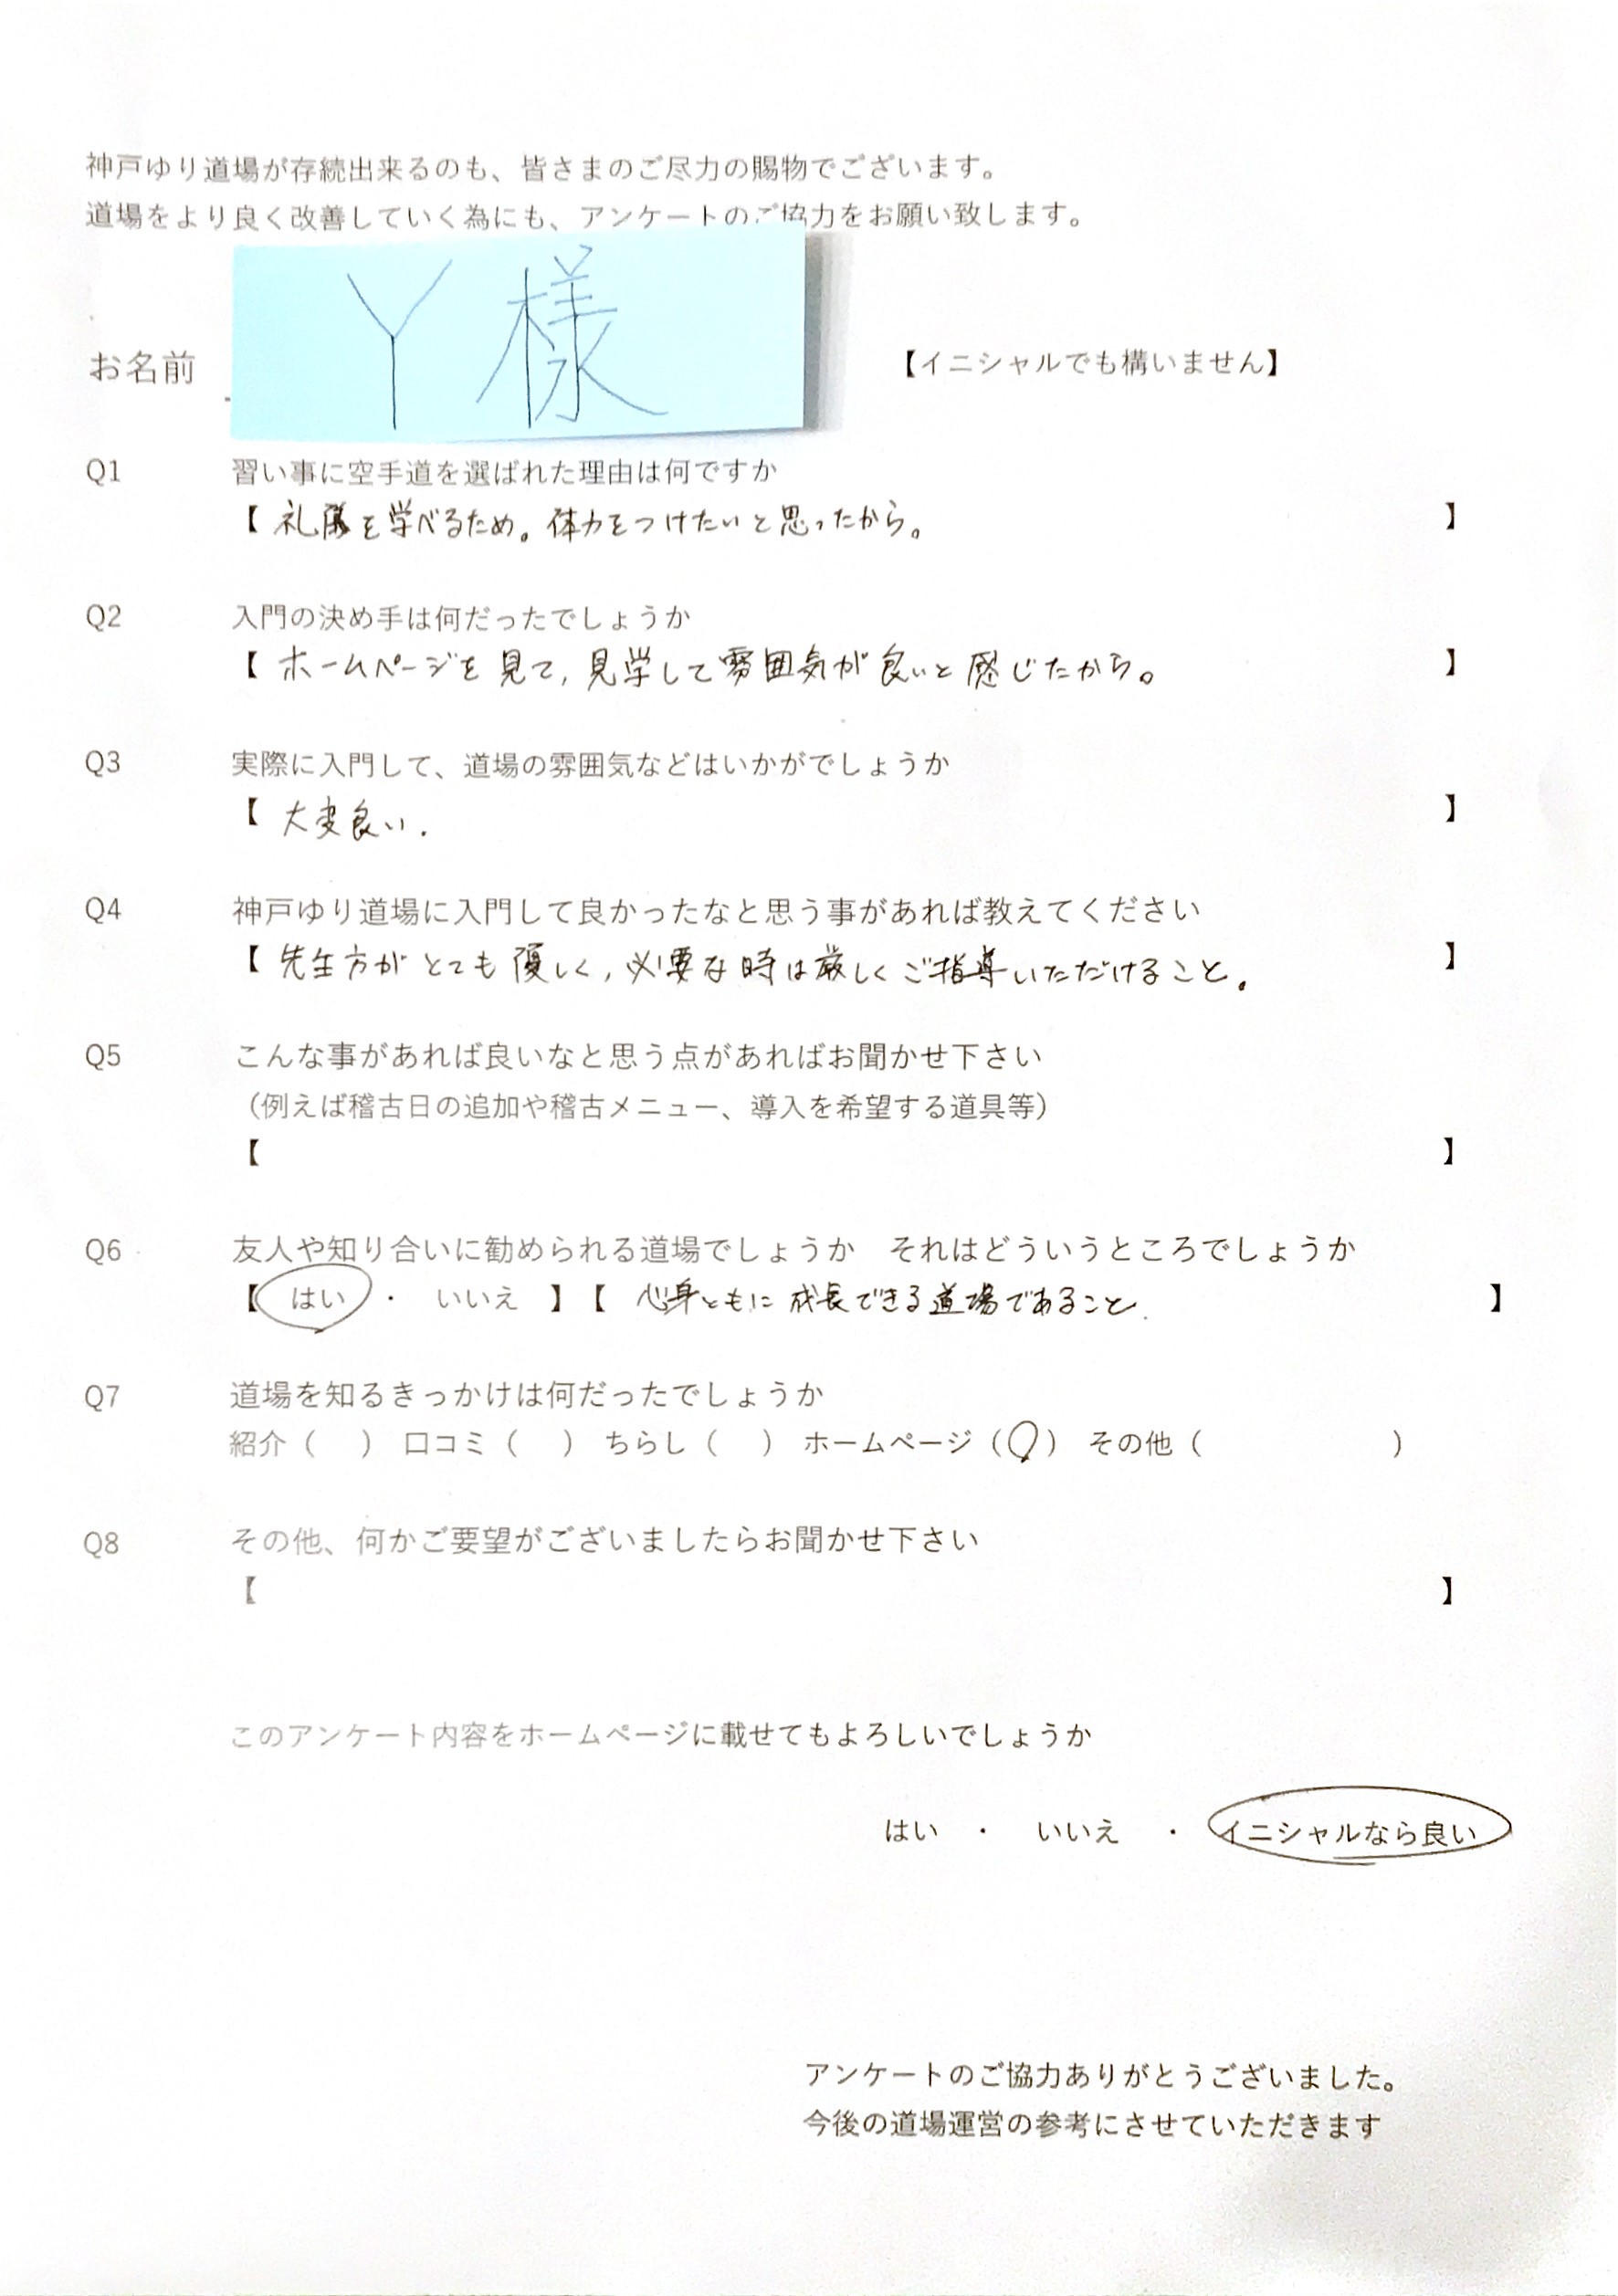 神戸ゆり道場が存続出来るのも、皆さまのご尽力の賜物でございます。
道場をより良く改善していく為にも、アンケートのご協力をお願い致します。
Y様
お名前 【イニシャルでも構いません】
Q1 習い事に空手道を選ばれた理由は何ですか
【 礼儀を学べるため。体力をつけたいと思ったから。 】
Q2 入門の決め手は何だったでしょうか
【 ホームページを見て,見学して雰囲気が良いと感じたから。 】
Q3 実際に入門して、道場の雰囲気などはいかがでしょうか
【 大変良い. 】
Q4 神戸ゆり道場に入門して良かったなと思う事があれば教えてください
【 先生方がとても優しく,必要な時は厳しくご指導いただけること。 】
Q5 こんな事があれば良いなと思う点があればお聞かせ下さい
（例えば稽古日の追加や稽古メニュー、導入を希望する道具等）
【 】
Q6 友人や知り合いに勧められる道場でしょうか それはどういうところでしょうか
【 はい ・ いいえ 】【 心身ともに成長できる道場であること. 】
Q7 道場を知るきっかけは何だったでしょうか
紹介（ ） 口コミ（ ） ちらし（ ） ホームページ（○） その他（ ）
Q8 その他、何かご要望がございましたらお聞かせ下さい
【 】
このアンケート内容をホームページに載せてもよろしいでしょうか
はい ・ いいえ ・ イニシャルなら良い
アンケートのご協力ありがとうございました。
今後の道場運営の参考にさせていただきます